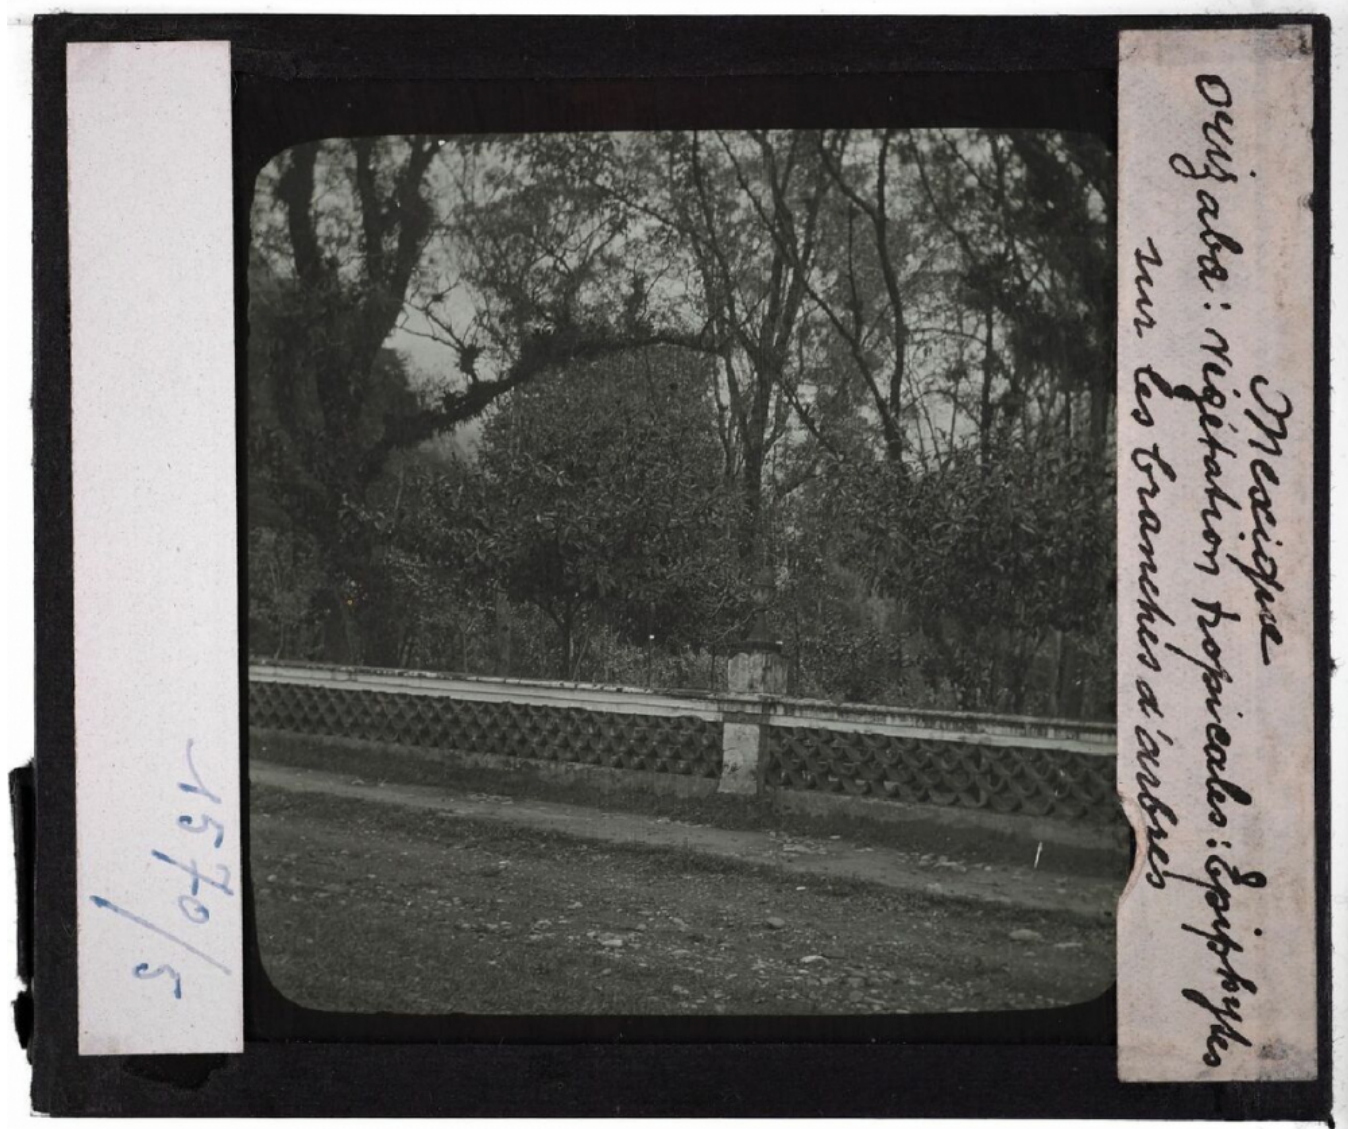 Mexique
Orizaba: végétation tropicales: Épiphytes
sur les branches d'arbres
1570/5